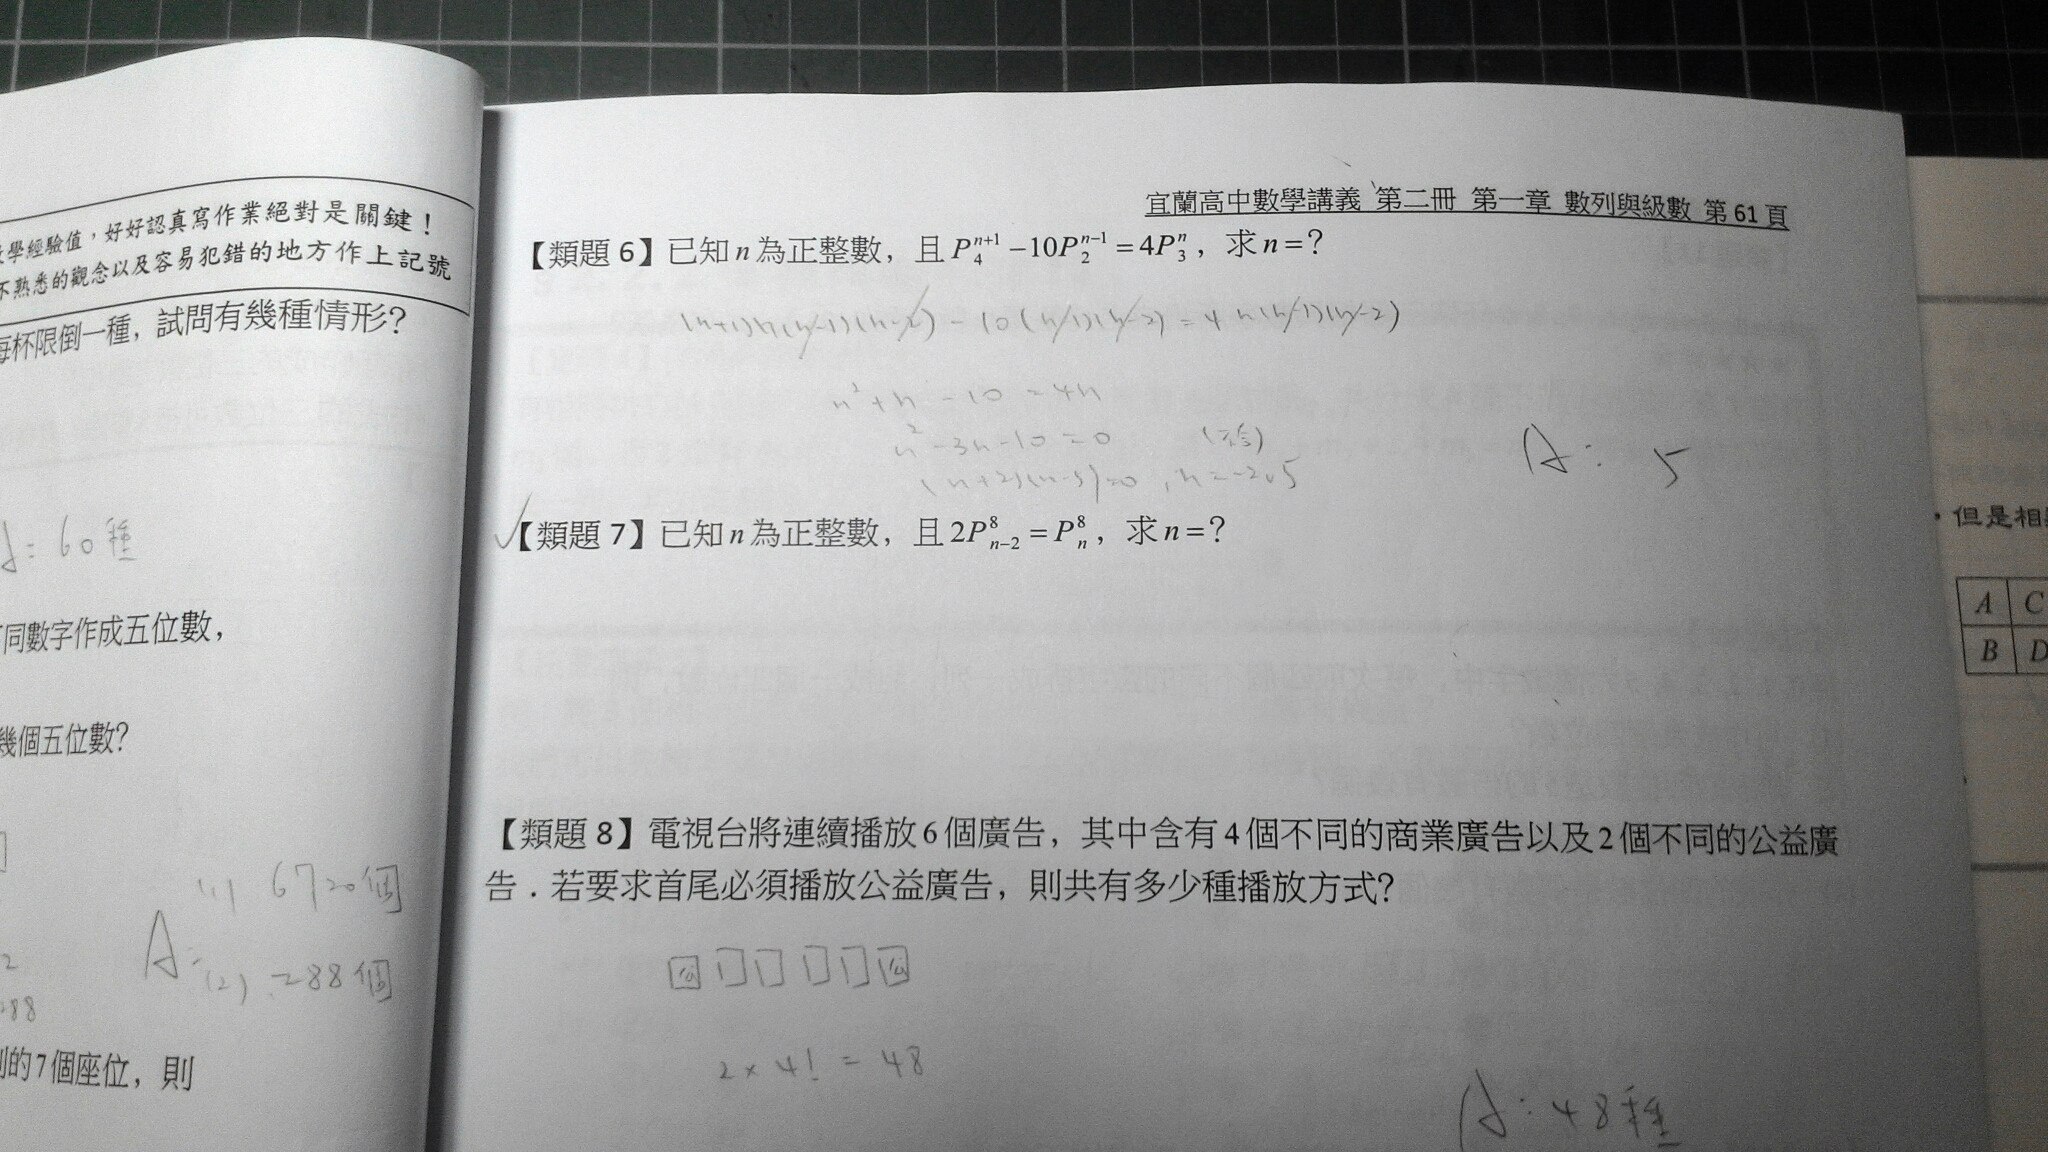 學經驗值，好好認真寫作業絕對是關鍵！
不熟悉的觀念以及容易犯錯的地方作上記號
每杯限倒一種，試問有幾種情形？
A = 60種
同數字作成五位數，
幾個五位數？
A = (1) 6720個
(2) 288個
2
288
的7個座位，則
宜蘭高中數學講義 第二冊 第一章 數列與級數 第61頁
【類題6】已知n為正整數，且 P₄ⁿ⁺¹ －10P₂ⁿ⁻¹ ＝ 4P₃ⁿ，求n＝？
(n+1)n(n-1)(n-2) - 10(n-1)(n-2) = 4n(n-1)(n-2)
n²+n-10=4n
n²-3n-10=0 (不合)
(n+2)(n-5)=0, n=-2,5
A: 5
✓【類題7】已知n為正整數，且 2P⁸ₙ₋₂ ＝ P⁸ₙ，求n＝？
【類題8】電視台將連續播放6個廣告，其中含有4個不同的商業廣告以及2個不同的公益廣
告．若要求首尾必須播放公益廣告，則共有多少種播放方式？
公 公
2×4! = 48
A: 48種
，但是相
A C
B D